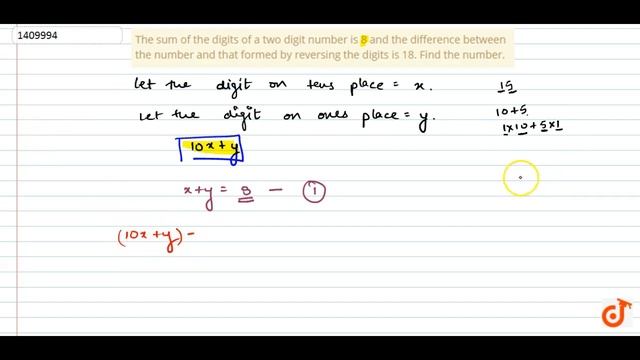 1409994
The sum of the digits of a two digit number is 8 and the difference between
the number and that formed by reversing the digits is 18. Find the number.
Let the digit on tens place = x.
15
Let the digit on ones place = y.
10+5
1×10+5×1
10x+y
x+y = 8 — ①
(10x+y) –
doubtnut